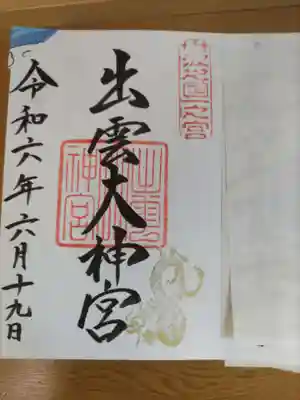 丹波國一之宮
出雲大神宮
令和六年六月十九日